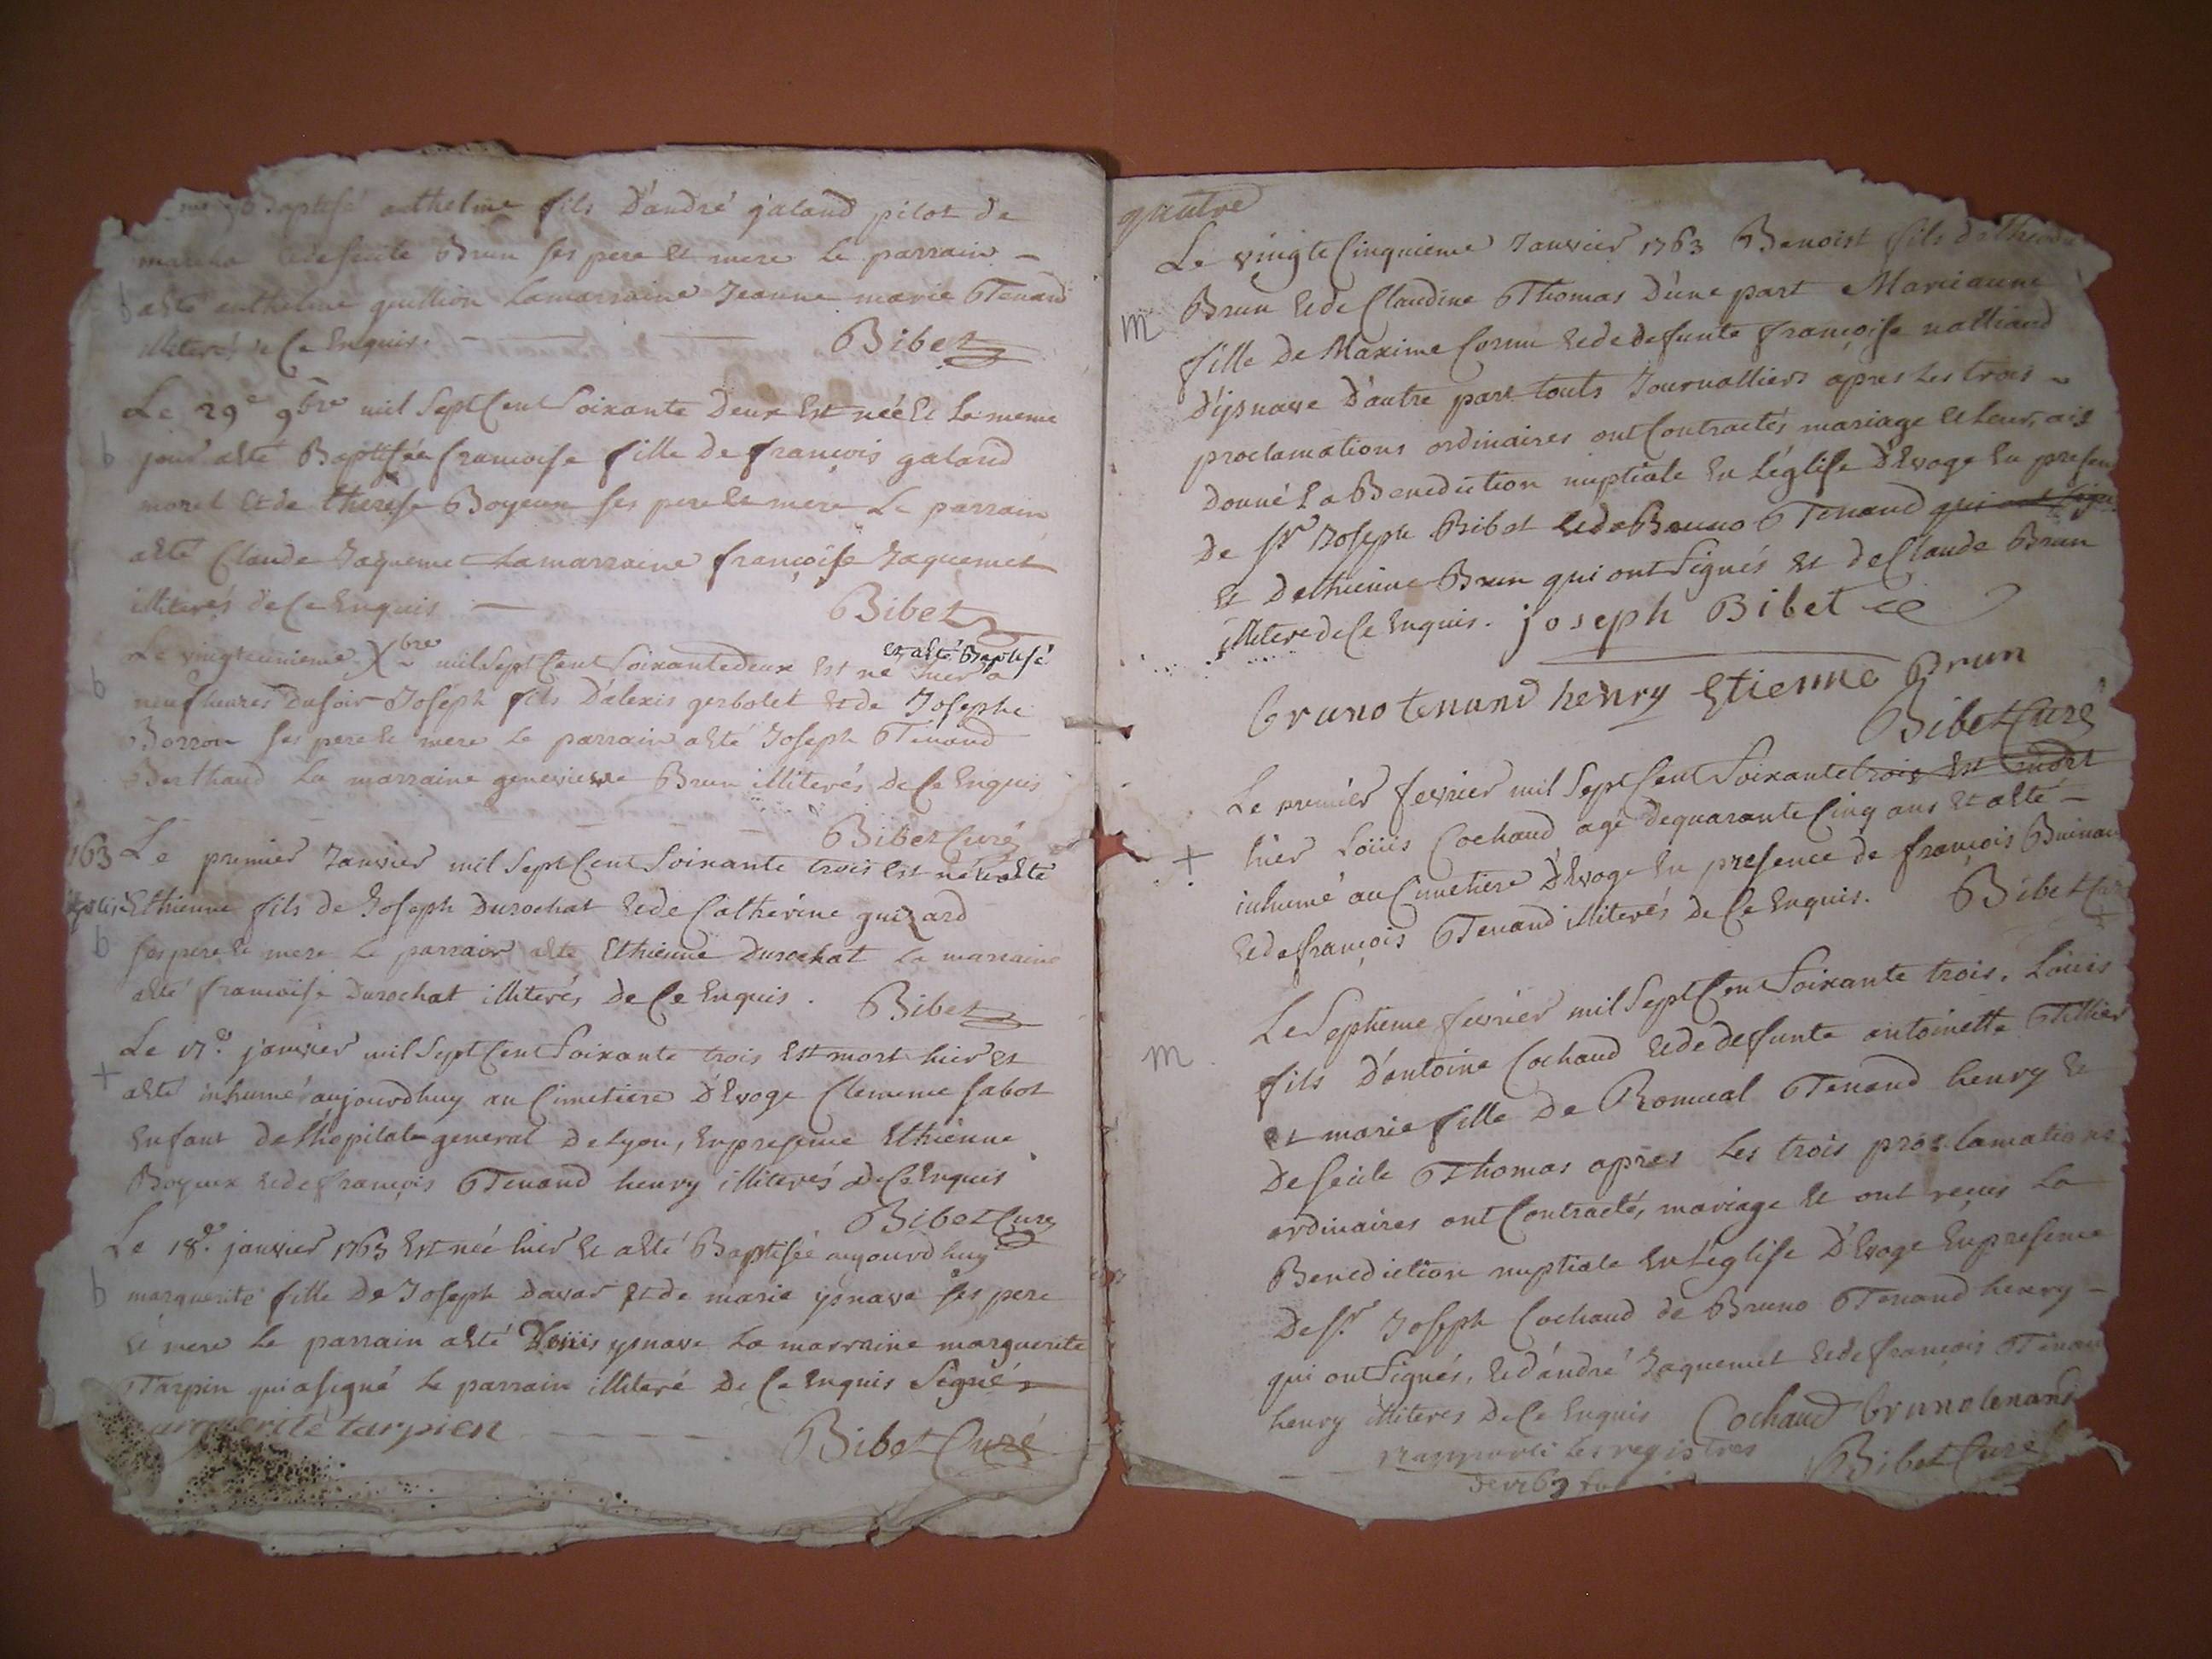 Baptisé anthelme fils D'andré galand pilot de
Brun ses pere et mere Le parrain
aété anthelme guillion Lamarraine Jeanne marie Tenand
illiterés de Ce Enquis. Bibet
Le 29e 9bre mil Sept Cent Soixante Deux Est née Et Le meme
b jour aété Baptisée francoise fille de francois galand
morel Et de therese Boyeux ses pere Et mere Le parrain
aété Claude Jaquemet Lamarraine francoise Jaquemet
illiterés de Ce Enquis Bibet
Le vingteunieme Xbre mil Sept Cent Soixante deux Est né hier a
et aété Baptisé
b neuf heures Du soir Joseph fils D'alexis gerbolet Et de Josephe
Borron ses pere Et mere Le parrain aété Joseph Tenand
Berthaud La marraine genevieve Brun illiterés De Ce Enquis
Bibet Curé
163 Le premier Janvier mil Sept Cent Soixante trois Est né Et aété
Ethienne fils de Joseph Durochat Et de Catherine guizard
b ses pere Et mere Le parrain aété Ethienne Durochat La marraine
aété francoise Durochat illiterés De Ce Enquis. Bibet
Le 17e janvier mil Sept Cent Soixante trois Est mort hier Et
+ aété inhumé aujourdhuy au Cimetiere D'Evoge Clemence sabot
Enfant De Lhopital general De Lyon, En presence Ethienne
Boyeux Et de francois Tenand henry illiterés De Ce Enquis
Bibet Curé
Le 18e janvier 1763 Est née hier Et aété Baptisée aujourdhuy
b marguerite fille De Joseph Davar Et de marie ysnave ses pere
Et mere Le parrain aété Loüis ysnave La marraine marguerite
Tarpin qui asigné Le parrain illiteré De Ce Enquis Signé
arguerite tarpien Bibet Curé
Le vingte Cinquieme Janvier 1763 Benoist fils
m Brun Et de Claudine Thomas D'une part Marianne
fille De Maxime Cornu Et de defunte françoise nalliand
D'ysnave D'autre part touts Journalliers apres Les trois
proclamations ordinaires ont Contractés mariage Et Leur, ais
Donné La Benediction nuptiale En L'église D'Evoge En presen
De Sr Joseph Bibet Et de Bruno Tenand qui ont signé
Et Dethienne Brun qui ont Signés Et de Claude Brun
illitere de Ce Enquis. joseph Bibet
bruno tenand henry Etienne Brun
Bibet Curé
Le premier fevrier mil Sept Cent Soixante trois Est mort
+ hier Loüis Cochaud agé De quarante Cinq ans Et aété
inhumé au Cimetiere D'Evoge En presence de françois
Et de françois Tenand illiterés De Ce Enquis. Bibet Cur
Le Septieme fevrier mil Sept Cent Soixante trois, Loüis
m fils D'antoine Cochaud Et de defunte antoinette Tillier
Et marie fille De Romual Tenand henry Et
De secile Thomas apres Les trois proclamations
ordinaires ont Contractés mariage Et ont reçus La
Benediction nuptiale En L'église D'Evoge En presence
De Sr. Joseph Cochaud de Bruno Tenand henry
qui ont Signés, Et d'andré Jaquemet Et de françois Tenan
henry illiteres De Ce Enquis Cochaud bruno tenand
rapporté les registres Bibet Curé